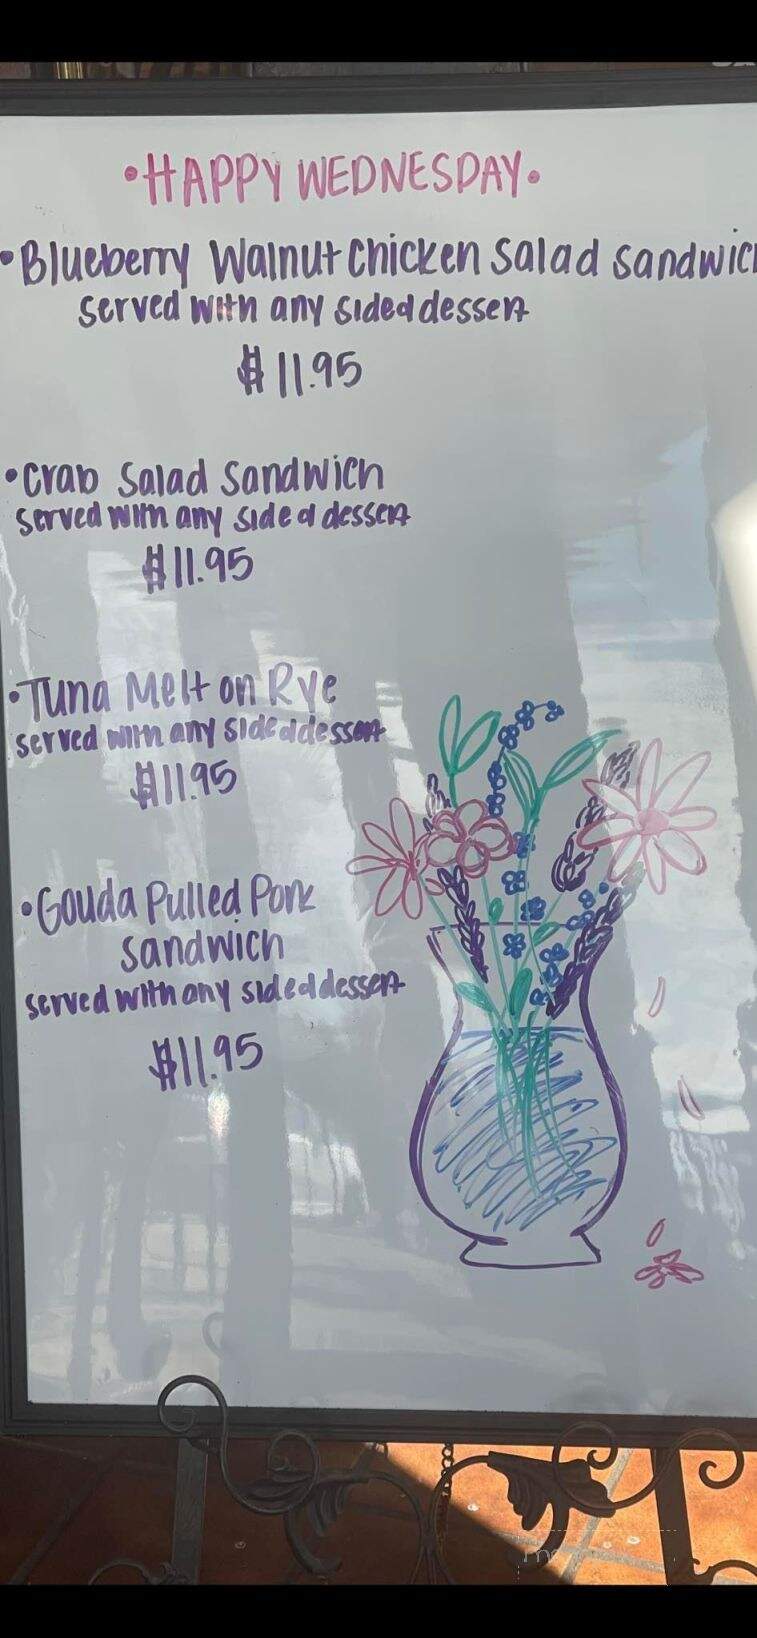 •HAPPY WEDNESDAY•
•Blueberry Walnut Chicken Salad Sandwich
served with any side d dessert
$11.95
•Crab Salad Sandwich
served with any side d dessert
$11.95
•Tuna Melt on Rye
served with any side d dessert
$11.95
•Gouda Pulled Pork
sandwich
served with any side d dessert
$11.95